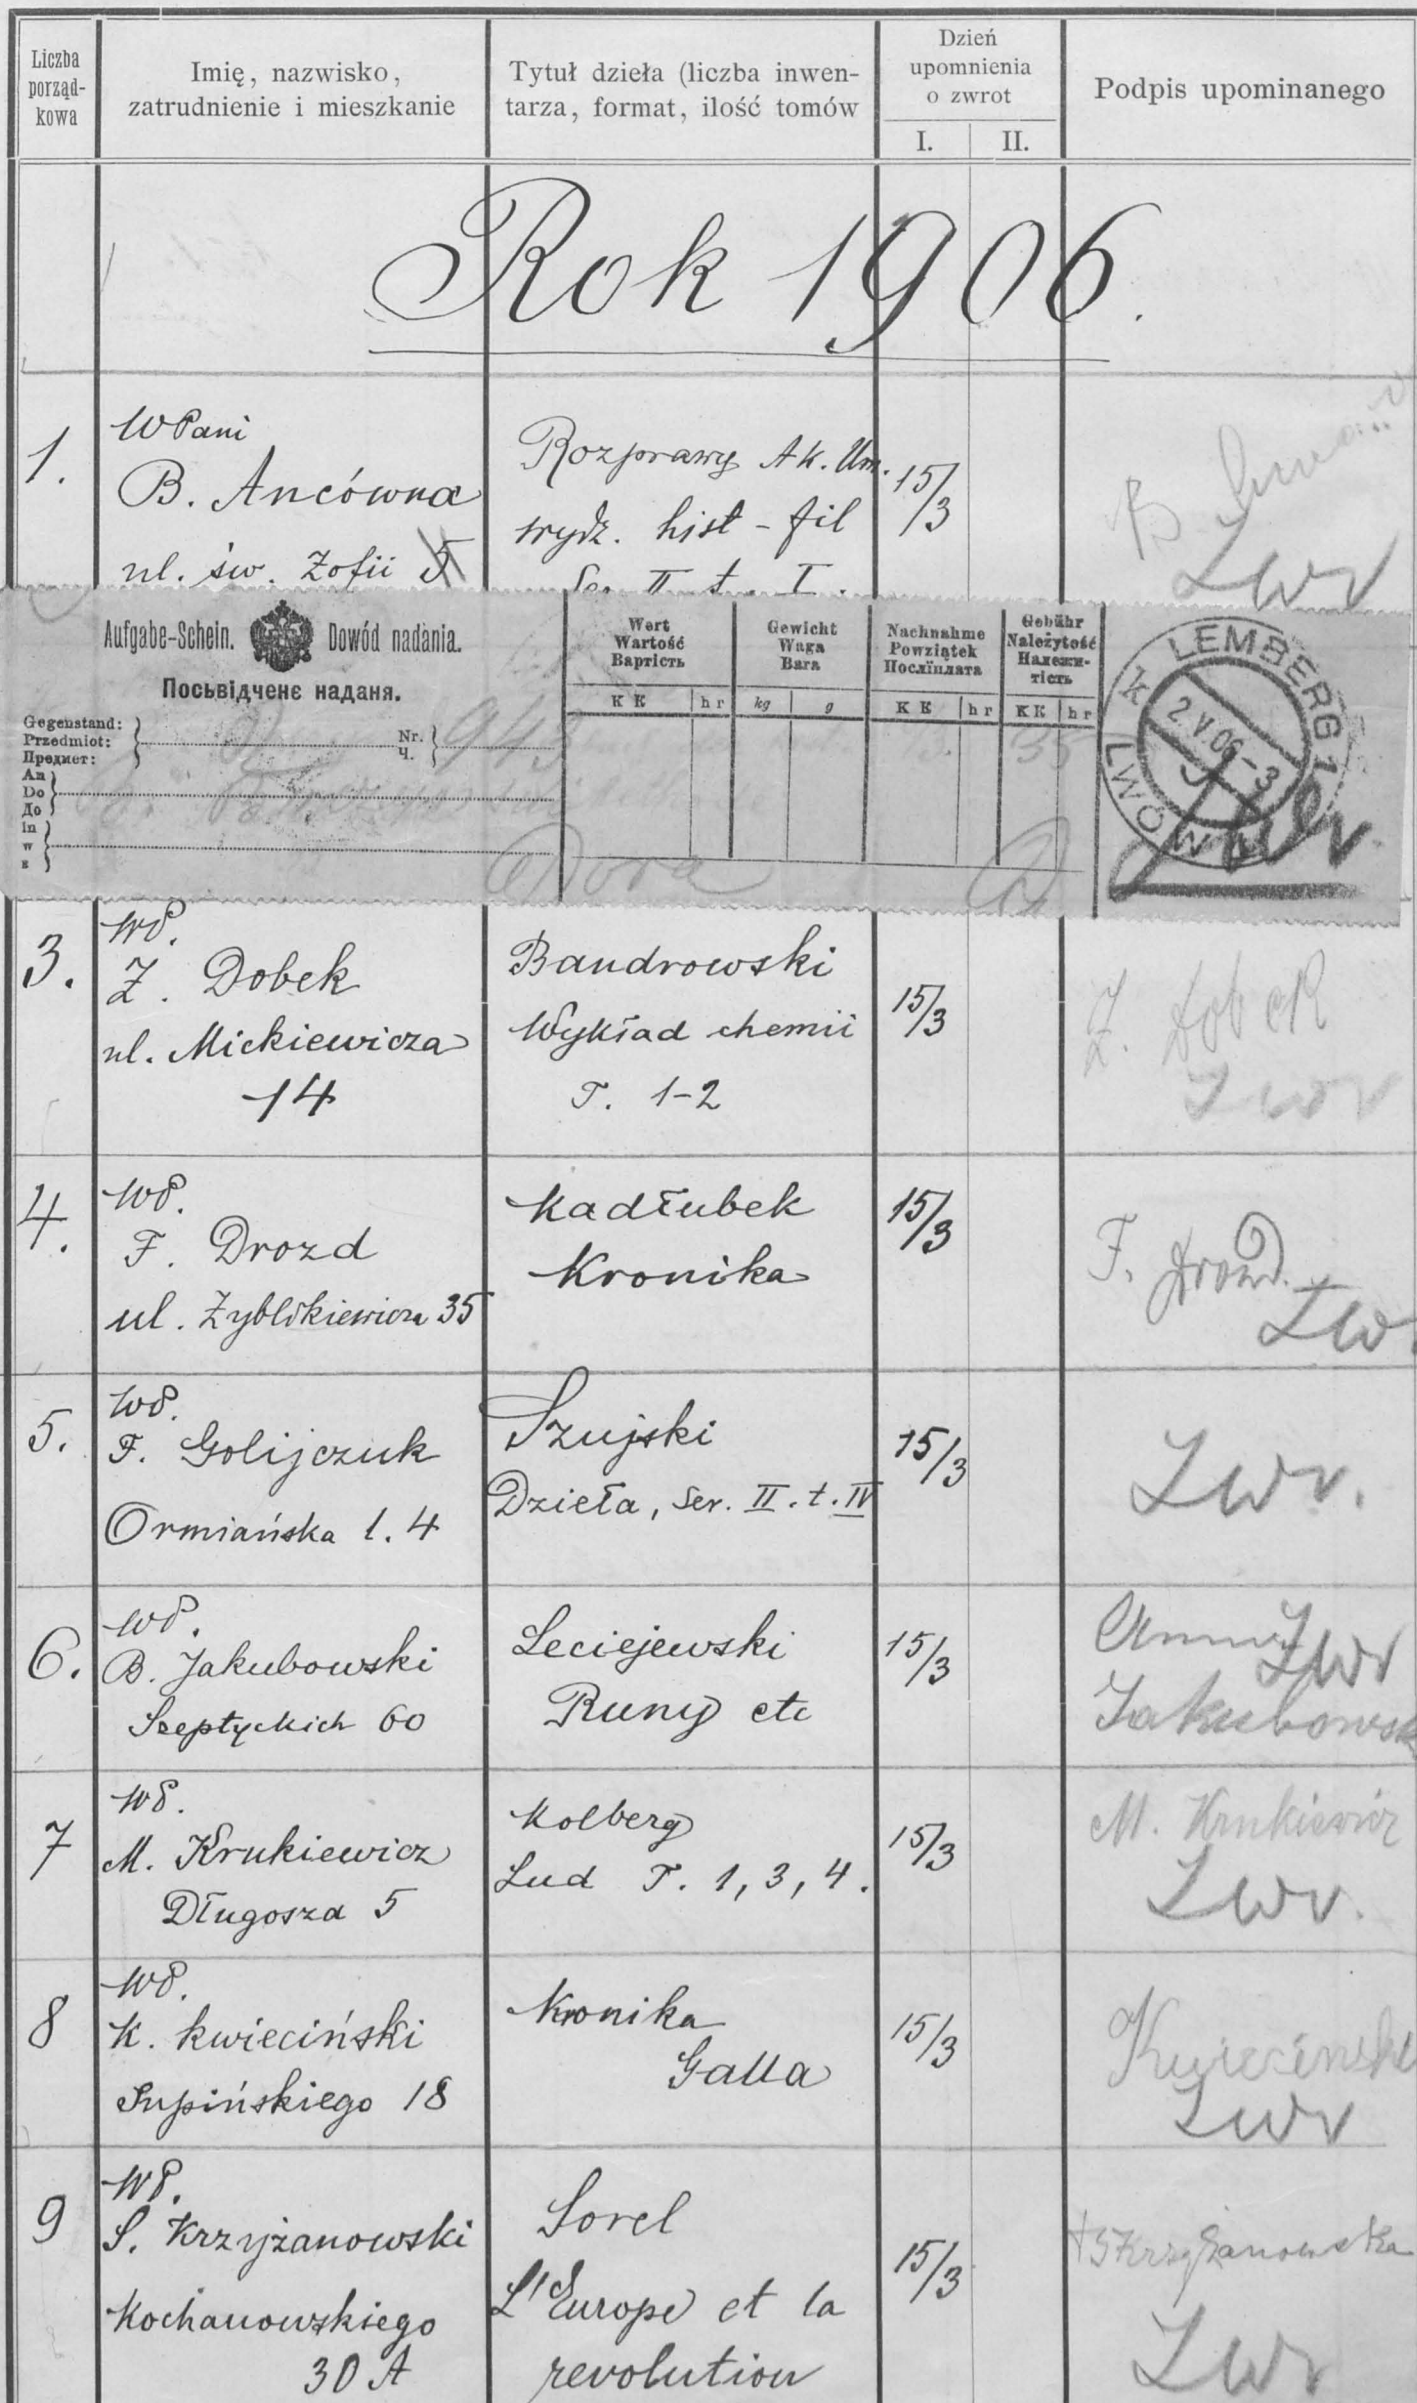 Liczba
porząd-
kowa
Imię, nazwisko,
zatrudnienie i mieszkanie
Tytuł dzieła (liczba inwen-
tarza, format, ilość tomów
Dzień
upomnienia
o zwrot
I. II.
Podpis upominanego
Rok 1906.
1.
WPani
B. Ancówna
ul. św. Zofii 5
Rozprawy Ak. Um.
wydz. hist - fil
Ser. II t. I.
15/3
B.
Zwr
Aufgabe-Schein. Dowód nadania.
Посьвідченє наданя.
Gegenstand:
Przedmiot:
Предмет:
Nr.
Ч.
943
An
Do
До
in
w
в
Wert
Wartość
Вартість
K K h r
Gewicht
Waga
Вага
kg g
Nachnahme
Powziątek
Послїплата
K K h r
Gebühr
Należytość
Належи-
тість
K K h r
35
LEMBERG 1
LWÓW
2 V.06-3
Zwr.
3.
WP.
Z. Dobek
ul. Mickiewicza
14
Bandrowski
Wykład chemii
T. 1-2
15/3
Z. Dobek
Zwr
4.
WP.
F. Drozd
ul. Zyblikiewicza 35
Kadłubek
Kronika
15/3
F. Drozd.
Zw.
5.
WP.
F. Golijczuk
Ormiańska l. 4
Szujski
Dzieła, Ser. II. t. IV
15/3
Zwr.
6.
WP.
B. Jakubowski
Szeptyckich 60
Leciejewski
Runy etc
15/3
Anna Zwr
Jakubowsk
7
WP.
M. Krukiewicz
Długosza 5
Kolberg
Lud T. 1, 3, 4.
15/3
M. Krukiewicz
Zwr.
8
WP.
K. Kwieciński
Supińskiego 18
Kronika
Galla
15/3
Kwieciński
Zwr
9
WP.
S. Krzyżanowski
Kochanowskiego
30 A
Sorel
L'Europe et la
revolution
15/3
Krzyżanowska
Zwr